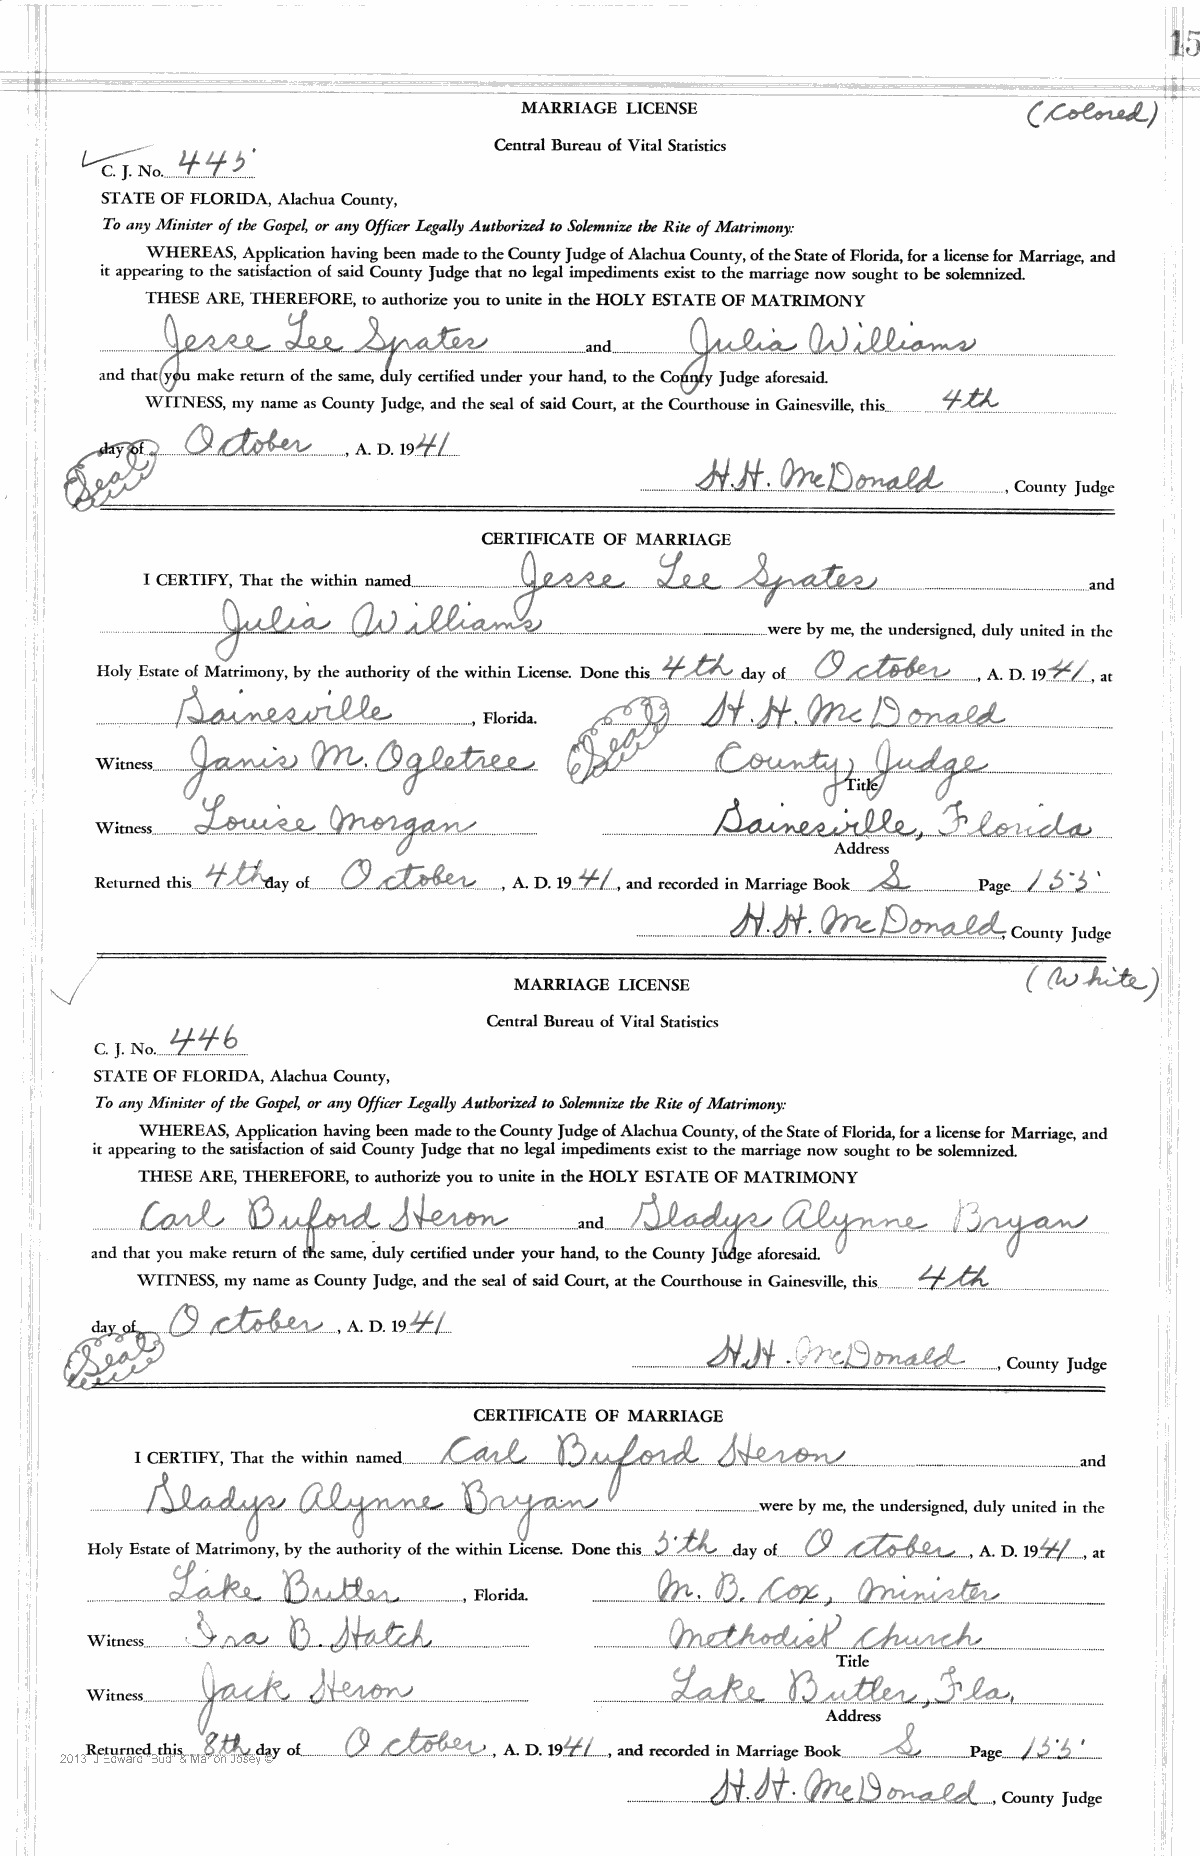 15
MARRIAGE LICENSE (Colored)
Central Bureau of Vital Statistics
C. J. No. 445
STATE OF FLORIDA, Alachua County,
To any Minister of the Gospel, or any Officer Legally Authorized to Solemnize the Rite of Matrimony:
WHEREAS, Application having been made to the County Judge of Alachua County, of the State of Florida, for a license for Marriage, and
it appearing to the satisfaction of said County Judge that no legal impediments exist to the marriage now sought to be solemnized.
THESE ARE, THEREFORE, to authorize you to unite in the HOLY ESTATE OF MATRIMONY
Jesse Lee Spates and Julia Williams
and that you make return of the same, duly certified under your hand, to the County Judge aforesaid.
WITNESS, my name as County Judge, and the seal of said Court, at the Courthouse in Gainesville, this 4th
day of October, A. D. 1941
Seal H.H. McDonald, County Judge
CERTIFICATE OF MARRIAGE
I CERTIFY, That the within named Jesse Lee Spates and
Julia Williams were by me, the undersigned, duly united in the
Holy Estate of Matrimony, by the authority of the within License. Done this 4th day of October, A. D. 1941, at
Gainesville, Florida. Seal H. H. McDonald
Witness Janis M. Ogletree County Judge
Title
Witness Louise Morgan Gainesville, Florida
Address
Returned this 4th day of October, A. D. 1941, and recorded in Marriage Book S Page 155
H.H. McDonald, County Judge
MARRIAGE LICENSE (White)
Central Bureau of Vital Statistics
C. J. No. 446
STATE OF FLORIDA, Alachua County,
To any Minister of the Gospel, or any Officer Legally Authorized to Solemnize the Rite of Matrimony:
WHEREAS, Application having been made to the County Judge of Alachua County, of the State of Florida, for a license for Marriage, and
it appearing to the satisfaction of said County Judge that no legal impediments exist to the marriage now sought to be solemnized.
THESE ARE, THEREFORE, to authorize you to unite in the HOLY ESTATE OF MATRIMONY
Carl Buford Heron and Gladys Alynne Bryan
and that you make return of the same, duly certified under your hand, to the County Judge aforesaid.
WITNESS, my name as County Judge, and the seal of said Court, at the Courthouse in Gainesville, this 4th
day of October, A. D. 1941
Seal H.H. McDonald, County Judge
CERTIFICATE OF MARRIAGE
I CERTIFY, That the within named Carl Buford Heron and
Gladys Alynne Bryan were by me, the undersigned, duly united in the
Holy Estate of Matrimony, by the authority of the within License. Done this 5th day of October, A. D. 1941, at
Lake Butler, Florida. M. B. Cox, Minister
Witness Ira B. Hatch Methodist Church
Title
Witness Jack Heron Lake Butler, Fla.
Address
Returned this 8th day of October, A. D. 1941, and recorded in Marriage Book S Page 155
2013 J Edward "Bud" & Marion Josey ©
H.H. McDonald, County Judge